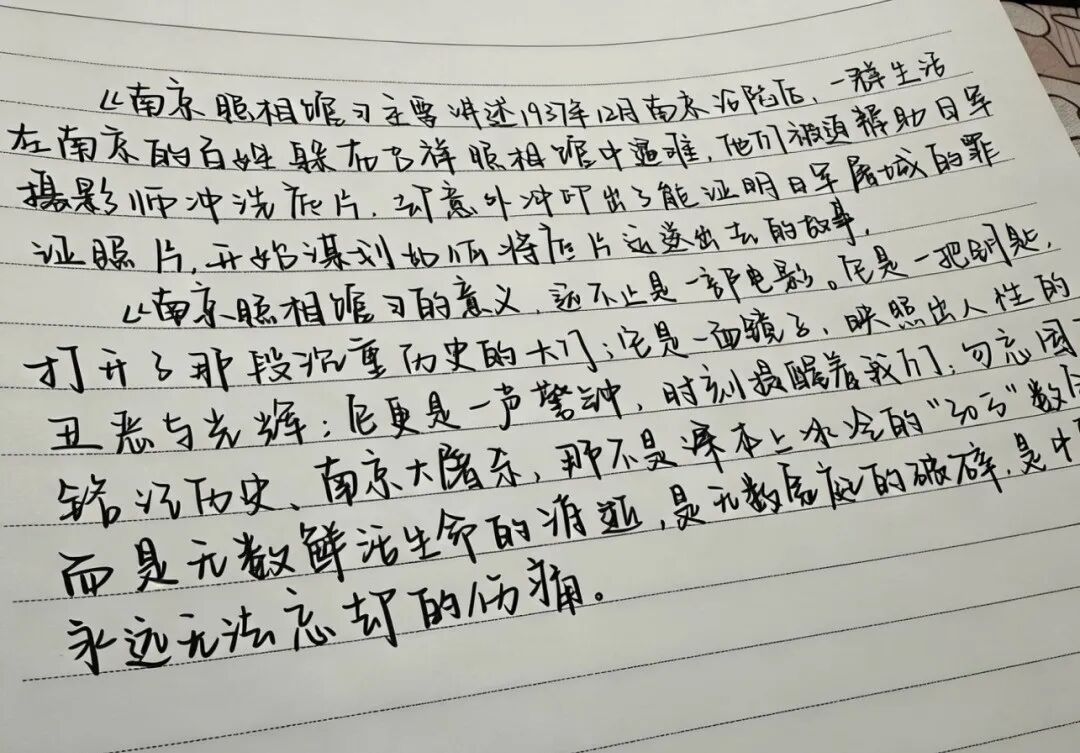 《南京照相馆》主要讲述1937年12月南京沦陷后,一群生活
在南京的百姓躲在吉祥照相馆中避难,他们被迫帮助日军
摄影师冲洗底片,却意外冲印出了能证明日军屠城的罪
证照片,开始谋划如何将底片运送出去的故事。
《南京照相馆》的意义,远不止是一部电影。它是一把钥匙,
打开了那段沉重历史的大门;它是一面镜子,映照出人性的
丑恶与光辉;它更是一声警钟,时刻提醒着我们:勿忘国
铭记历史、南京大屠杀,那不是课本上冰冷的“30万”数
而是无数鲜活生命的消逝,是无数家庭的破碎,是中
永远无法忘却的伤痛。